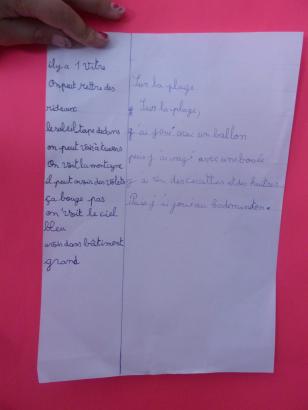 il y a 1 vitre
On peut mettre des
rideaux
le soleil tape dedans
on peut voir à travers
On voit la montagne
il peut avoir des volets
ça bouge pas
on voit le ciel
bleu
dans bâtiment
grand
Sur la plage
Sur la plage,
j'ai joué avec un ballon
puis j'ai nagé avec une bouée
y a eu des et des huitres
Puis j'ai joué au badminton.